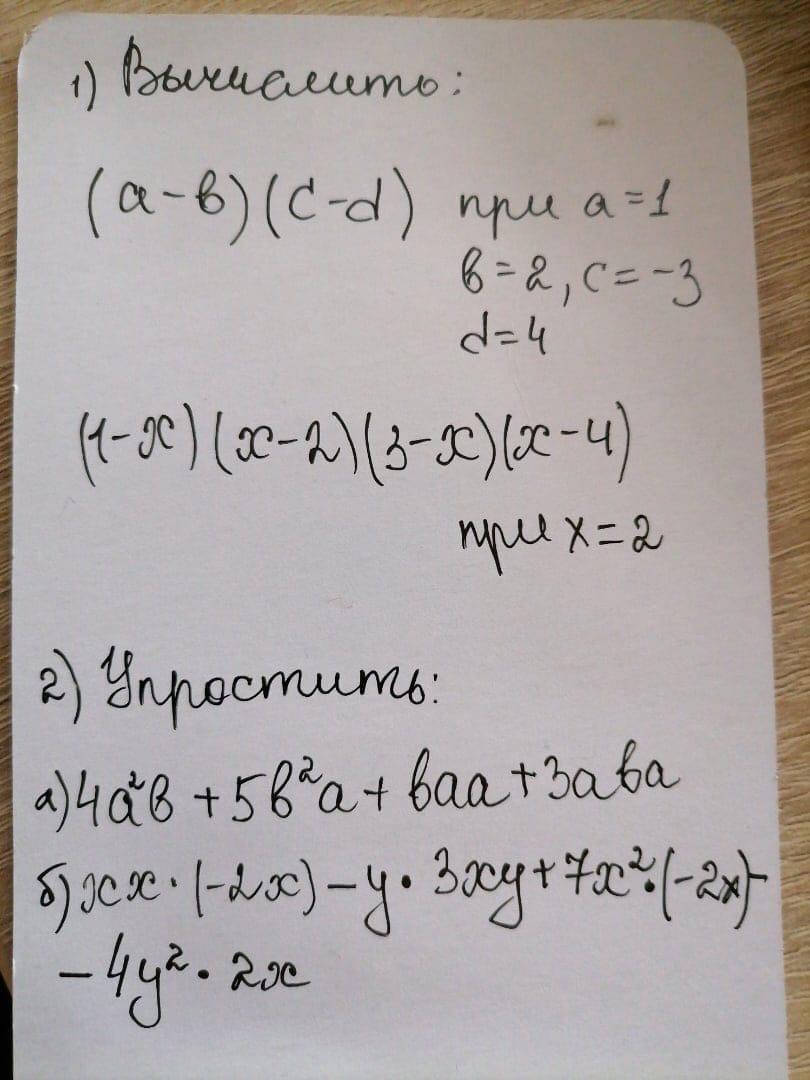 1) Вычислить:
(a-в)(c-d) при a=1
в=2, c=-3
d=4
(1-x)(x-2)(3-x)(x-4)
при x=2
2) Упростить:
а) 4a²в + 5в²a + вaa + 3aвa
б) xx · (-2x) - y · 3xy + 7x² · (-2x) -
- 4y² · 2x